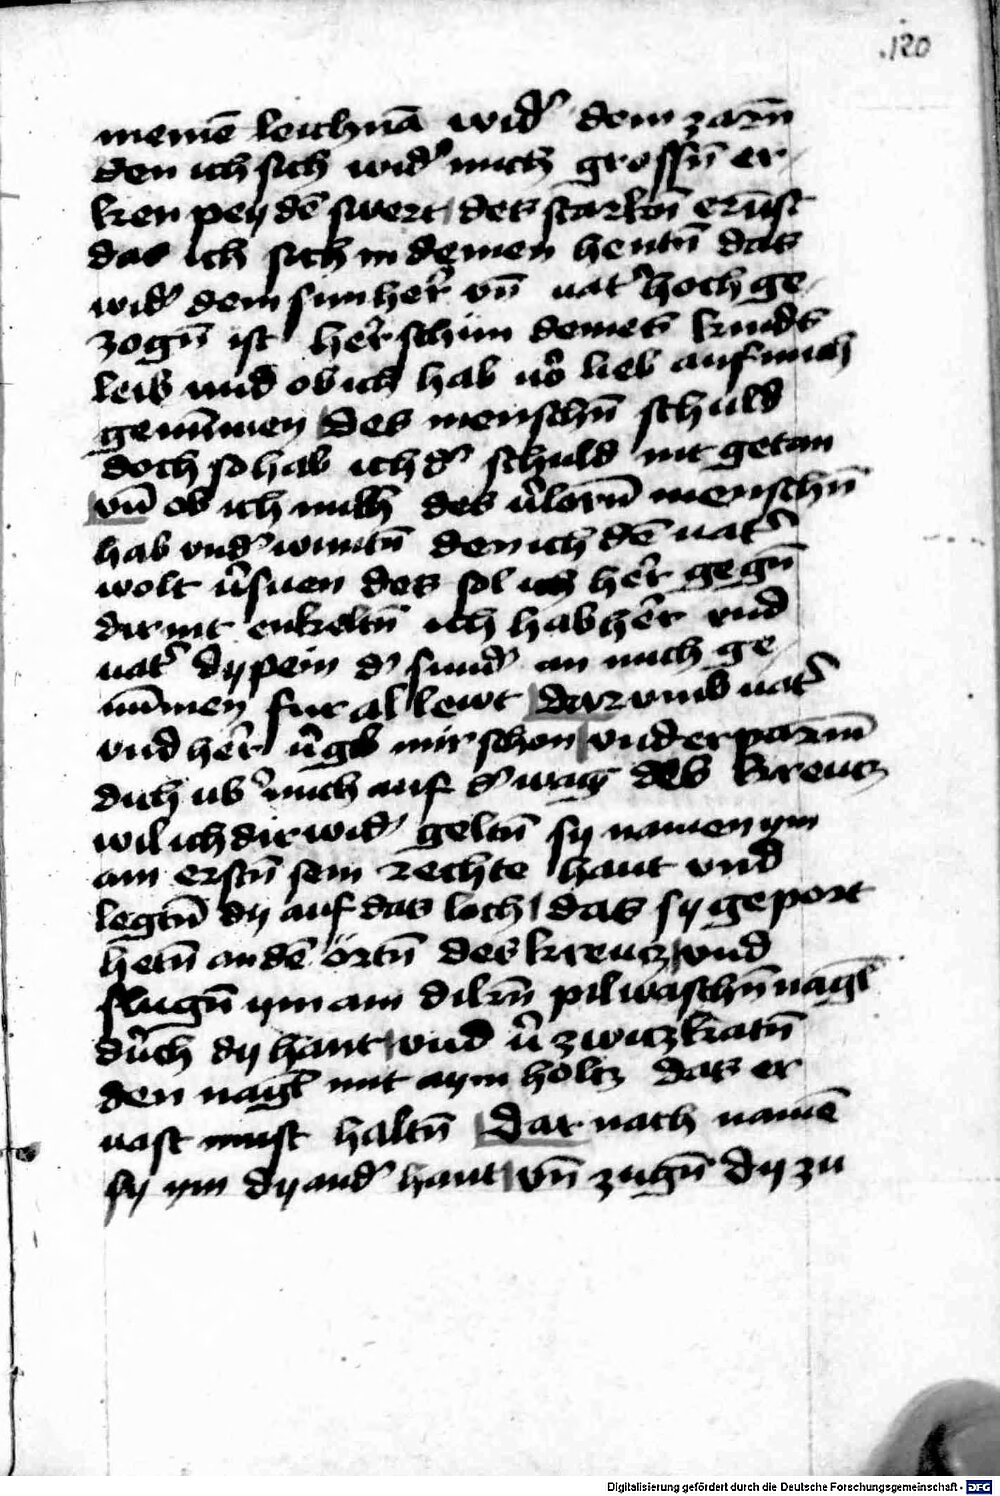 .120
meinē leichnā wid͛ dein zarñ
den ich sich wid͛ mich grossñ er-
ken pey dē swert des starkñ ernst
das ich sich in deinen hentñ das
wid͛ dein sun her͛ vñ vat͛ hoch ge-
zogñ ist her͛ schün deines kinds
leib und ob ich hab v͛ lieb auf mich
genūmen Des menschñ schuld
doch so hab ich d͛ schuld nit getan
vñ ob ich mich des v͛lorñ menschñ
hab vnd͛wuntñ den ich dē vat͛
wolt v͛suen des sol ich her͛ gegñ
dir nit enkeltñ ich hab her͛ vnd
vat͛ dy pein d͛ sund͛ an mich ge-
nūmen fur al lewt Dar vmb vat͛
vnd her͛ v͛gib mir schon vnd erparm̄
dich ub͛ mich auf d͛ wag des kreucz
wil ich dir wid͛ geltñ sy namen ym
am erstñ sein rechte hant vnd
legtñ dy auf das loch das sy geport
hetñ an dē örtñ des kreucz vnd
slugñ ym am dikñ nagl
durch dy hant vnd v͛zwiczkatñ
den nagl mit aym holcz das er
vast must haltñ Dar nach namē
sy ym dy and͛ hant vñ zugñ dy zu
Digitalisierung gefördert durch die Deutsche Forschungsgemeinschaft - DFG